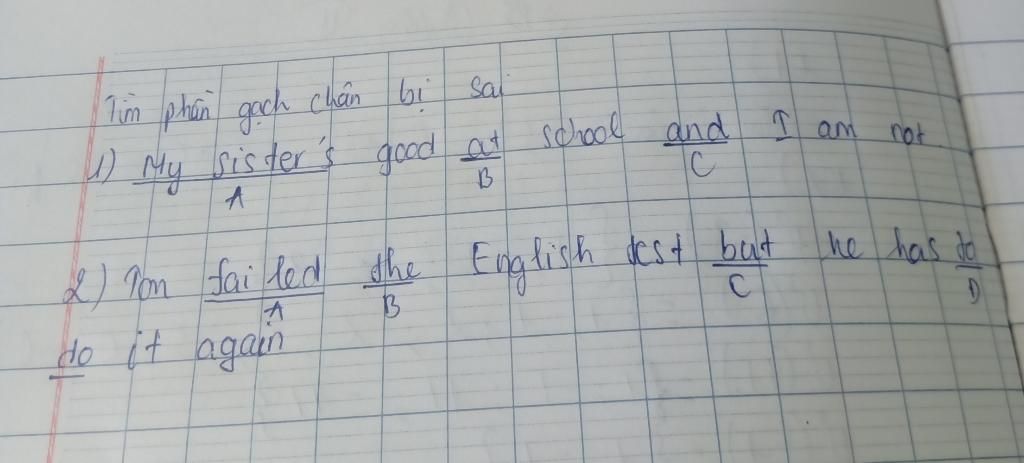 Tìm phần gạch chân bị sai
1) My sister's good at school and I am not
A B C
2) Tom failed the English test but he has to
A B C D
do it again